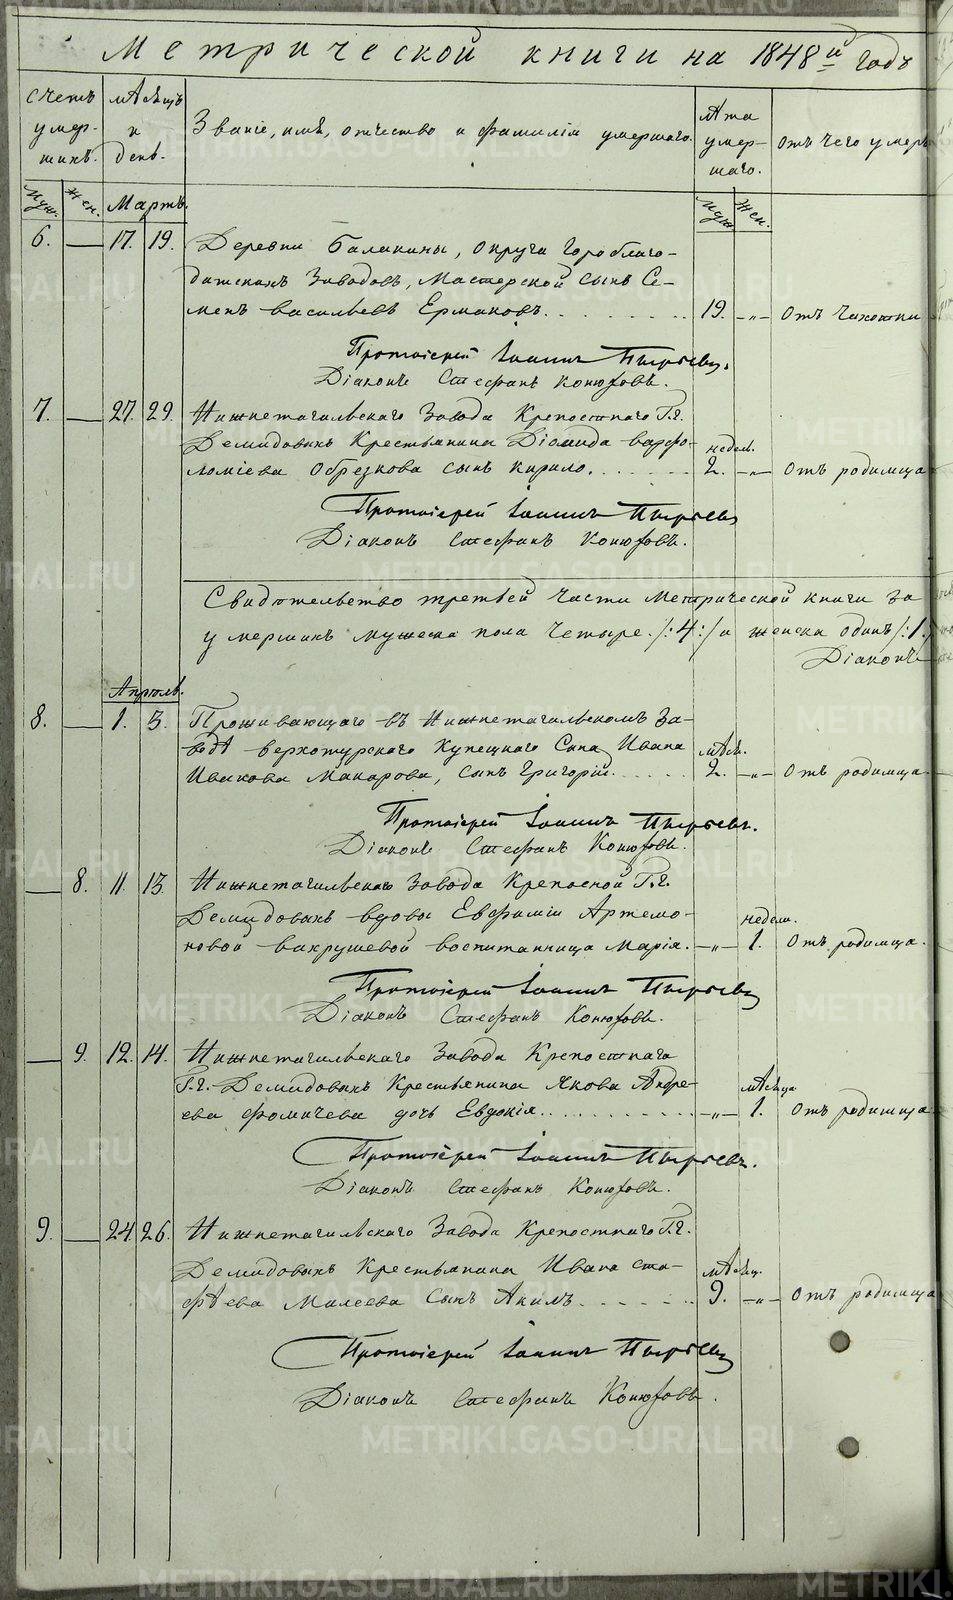 Метрической книги на 1848й годъ
Счетъ умер-шихъ.
Мѣсяцъ и день.
Званіе, имя, отчество и фамилія умершаго.
Лѣта умер-шаго.
Отъ чего умеръ
Муж. Жен. Мартъ. Муж. Жен.
6. — 17. 19. Деревни Балакины, округа Гороблаго-
датскихъ Заводовъ, Мастерской сынъ Се-
менъ Васильевъ Ермаковъ. 19. -„- Отъ чахотки
Протоіерей Іоаннъ Пырьевъ.
Діаконъ Стефанъ Конюховъ.
7. — 27. 29. Нижнетагильскаго Завода Крепостнаго Г.г.
Демидовыхъ Крестьянина Діомида Варфо- недел.
ломіева Обрезкова сынъ Кирило. 2. -„- Отъ родимца
Протоіерей Іоаннъ Пырьевъ
Діаконъ Стефанъ Конюховъ.
Свидѣтельство третьей части Метрической книги за
умершихъ мужеска пола четыре /:4:/ и женска одинъ /:1:/
Діаконъ
Апрѣль.
8. — 1. 3. Проживающаго въ Нижнетагильскомъ За-
водѣ Верхотурскаго Купецкаго Сына Ивана мѣся.
Иванова Макарова, сынъ Григорій. 2. -„- Отъ родимца.
Протоіерей Іоаннъ Пырьевъ.
Діаконъ Стефанъ Конюховъ.
— 8. 11. 13. Нижнетагильскаго Завода Крепосной Г.г.
Демидовыхъ вдовы Евфиміи Артемо- недели.
новой Вахрушевой воспитанница Марія. -„- 1. Отъ родимца.
Протоіерей Іоаннъ Пырьевъ
Діаконъ Стефанъ Конюховъ.
— 9. 12. 14. Нижнетагильскаго Завода Крепостнаго
Г.г. Демидовыхъ Крестьянина Якова Андре- мѣсяца
ева Фомичева дочь Евдокія. -„- 1. Отъ родимца
Протоіерей Іоаннъ Пырьевъ.
Діаконъ Стефанъ Конюховъ.
9. — 24. 26. Нижнетагильскаго Завода Крепостнаго Г.г.
Демидовыхъ Крестьянина Ивана Ста- мѣсяц.
фѣева Малеева Сынъ Акимъ. 9. -„- Отъ родимца
Протоіерей Іоаннъ Пырьевъ
Діаконъ Стефанъ Конюховъ.